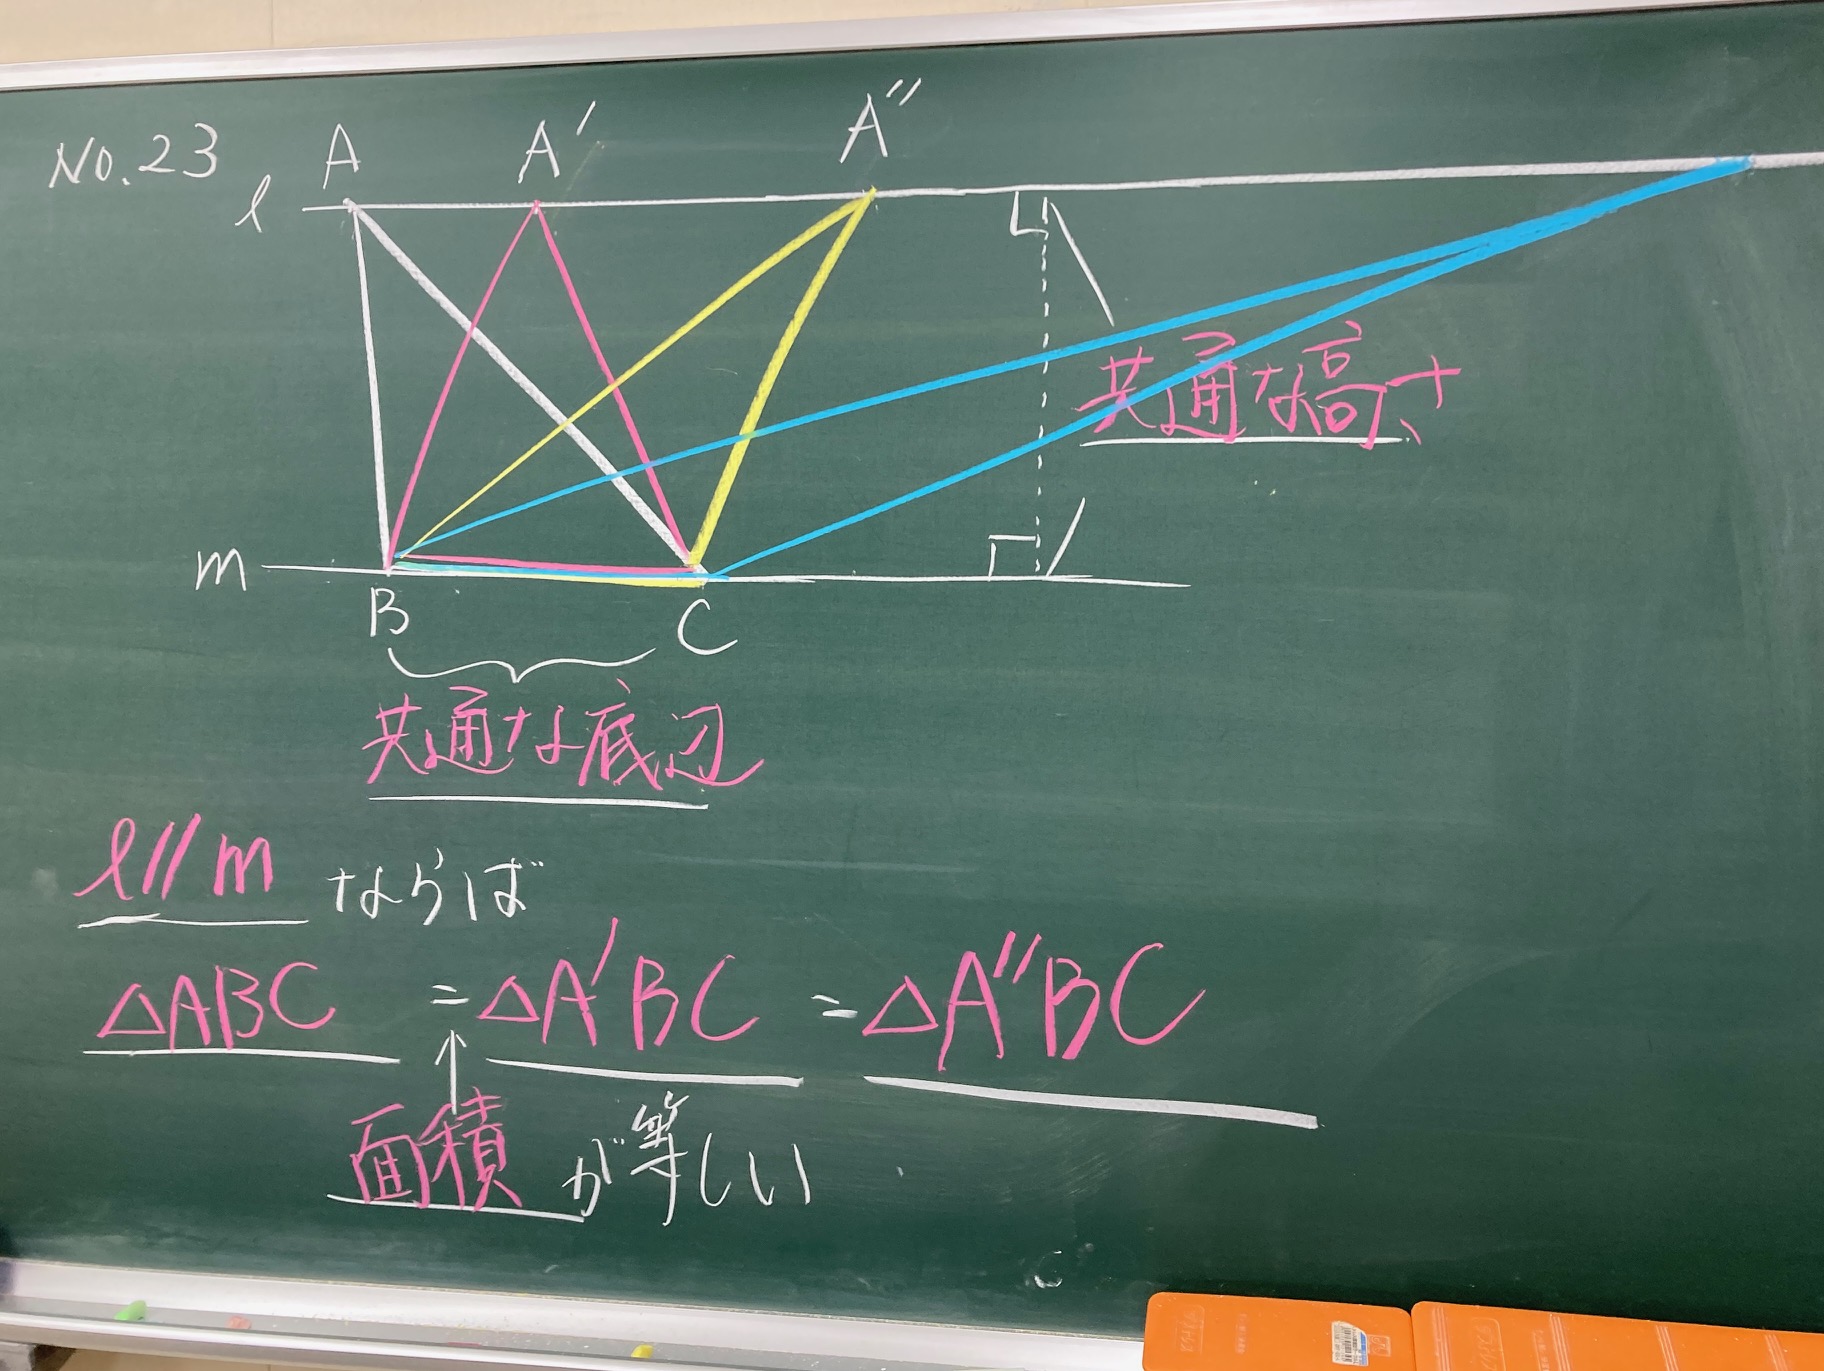 No.23
A A′ A″
ℓ
共通な高さ
m
B C
共通な底辺
ℓ//m ならば
△ABC = △A′BC = △A″BC
↑
面積が等しい